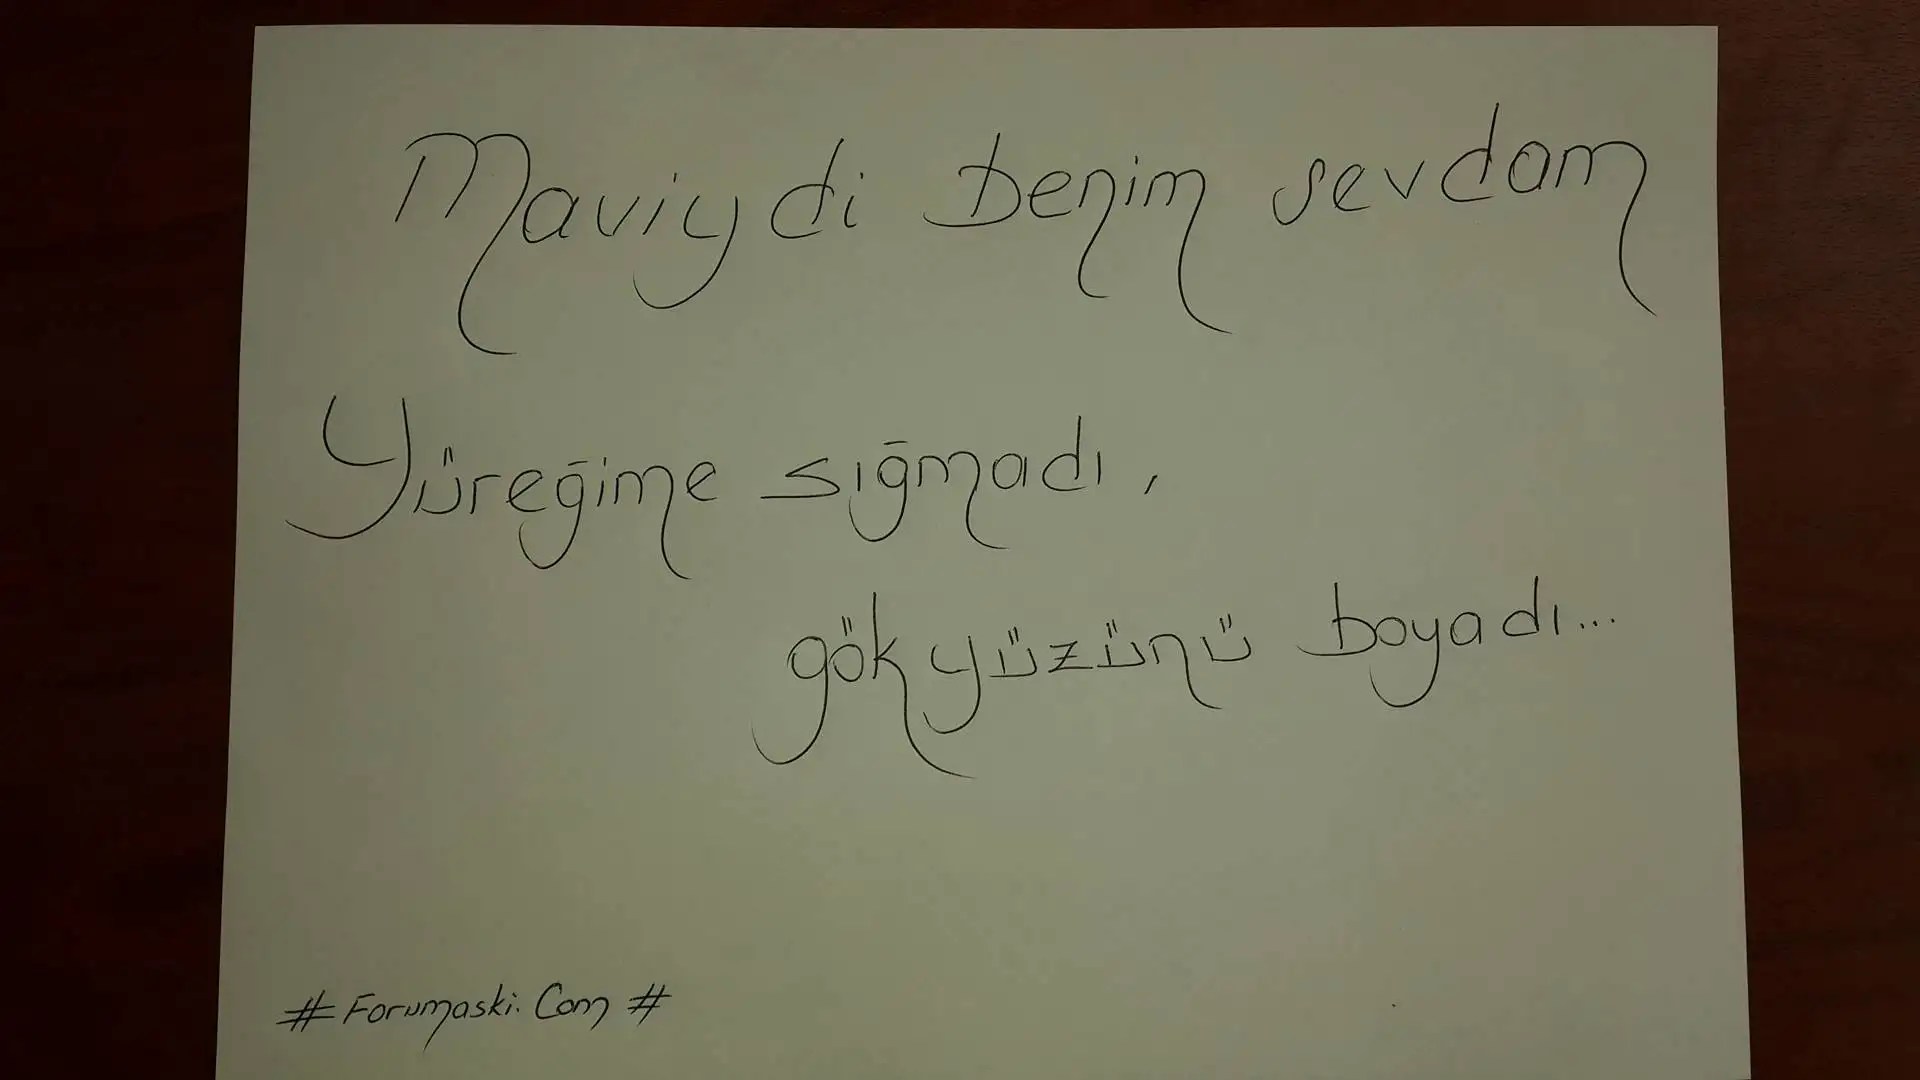 Maviydi benim sevdam
Yüreğime sığmadı,
gökyüzünü boyadı...
# Forumaski.Com #